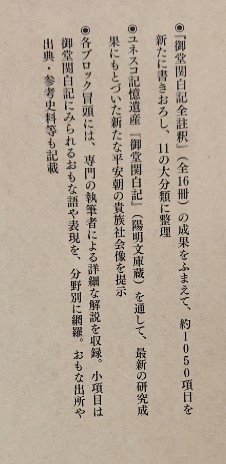 ◉『御堂関白記全註釈』（全16冊）の成果をふまえて、約1050項目を
新たに書きおろし、11の大分類に整理
◉ユネスコ記憶遺産『御堂関白記』（陽明文庫蔵）を通して、最新の研究成
果にもとづいた新たな平安朝の貴族社会像を提示
◉各ブロック冒頭には、専門の執筆者による詳細な解説を収録。小項目は
御堂関白記にみられるおもな語や表現を、分野別に網羅。おもな出所や
出典・参考史料等も記載